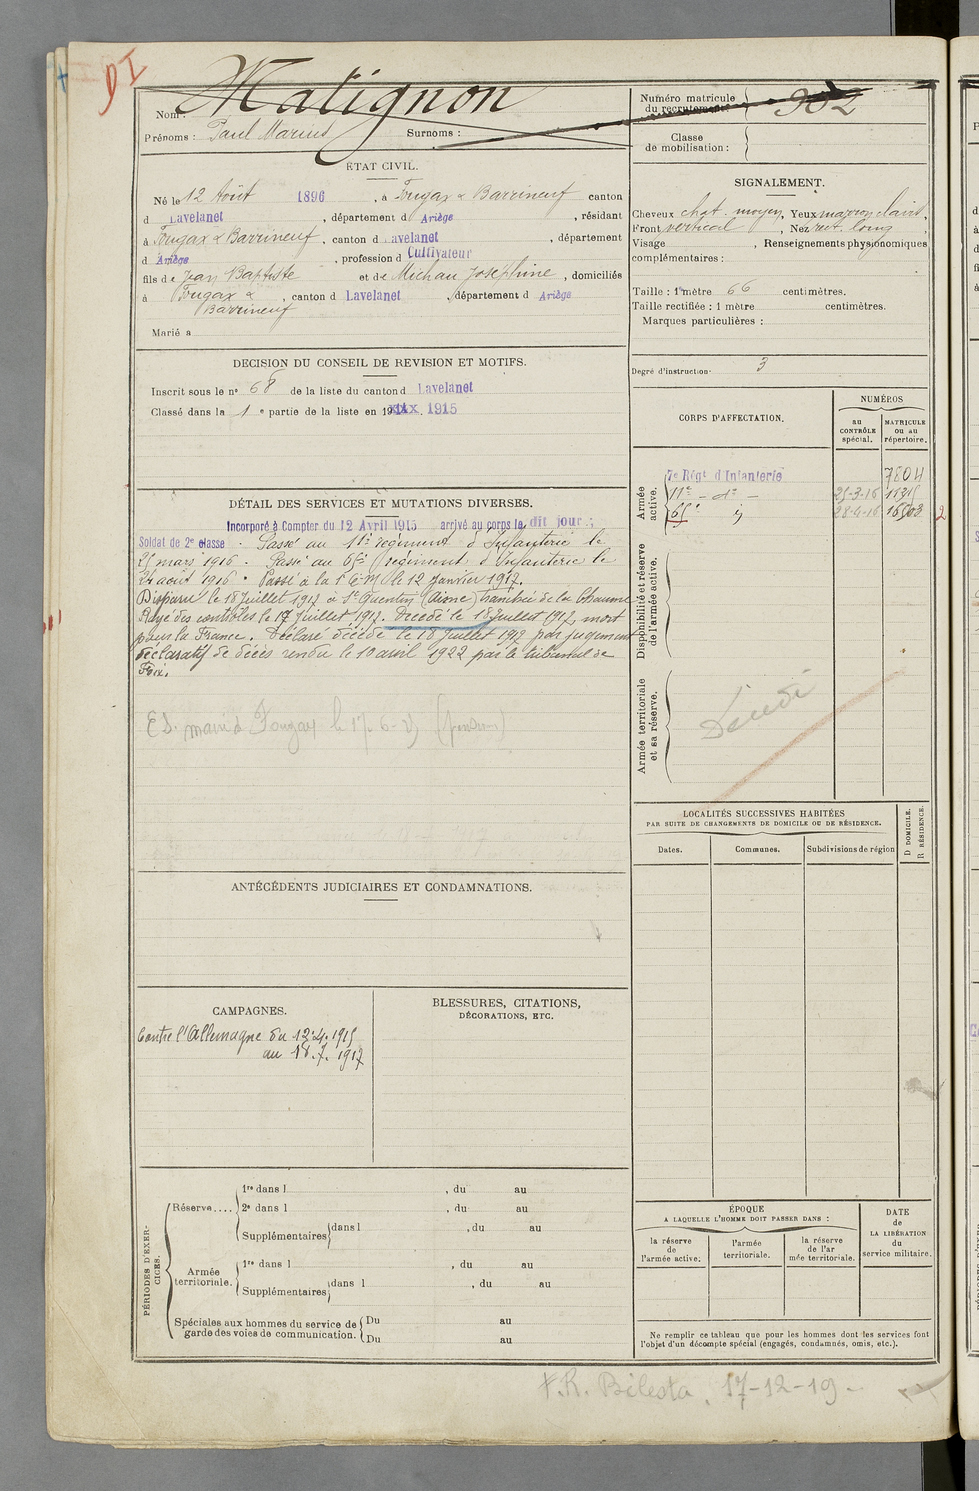 DI
Matignon
Nom :
Prénoms : Paul Marius Surnoms :
Numéro matricule du recrutement 982
Classe de mobilisation :
ÉTAT CIVIL.
Né le 12 Août 1896, à Fougax & Barrineuf canton
d Lavelanet, département d Ariège, résidant
à Fougax & Barrineuf, canton d Lavelanet, département
d Ariège, profession d Cultivateur
fils de Jean Baptiste et de Michau Joséphine, domiciliés
à Fougax & Barrineuf, canton d Lavelanet, département d Ariège
Marié à
SIGNALEMENT.
Cheveux chat. moyen, Yeux marron clairs,
Front vertical, Nez rect. long,
Visage , Renseignements physionomiques
complémentaires :
Taille : 1 mètre 66 centimètres.
Taille rectifiée : 1 mètre centimètres.
Marques particulières :
Degré d'instruction 3
DECISION DU CONSEIL DE REVISION ET MOTIFS.
Inscrit sous le nº 68 de la liste du canton d Lavelanet
Classé dans la 1e partie de la liste en 1915
DÉTAIL DES SERVICES ET MUTATIONS DIVERSES.
Incorporé à Compter du 12 Avril 1915 arrivé au corps le dit jour ;
Soldat de 2e classe. Passé au 11e régiment d'Infanterie le
25 mars 1916. Passé au 65e régiment d'Infanterie le
24 août 1916. Passé à la 1e C.M. le 12 janvier 1917.
Disparu le 18 Juillet 1917 à St Quentin (Aisne)
Rayé des contrôles le 17 Juillet 1917. Décédé le 18 Juillet 1917, mort
pour la France. Déclaré décédé le 18 Juillet 1917 par jugement
déclaratif de décès rendu le 10 avril 1922 par le tribunal de
Foix.
mairie Fougax le 17-6-
CORPS D'AFFECTATION.
NUMÉROS
au CONTRÔLE spécial.
MATRICULE ou au répertoire.
Armée active.
7e Régt d'Infanterie 7804
11e - do - 25-3-16 11315
65e 28-4-16 16503
2
Disponibilité et réserve de l'armée active.
Armée territoriale et sa réserve.
LOCALITÉS SUCCESSIVES HABITÉES
PAR SUITE DE CHANGEMENTS DE DOMICILE OU DE RÉSIDENCE.
Dates. Communes. Subdivisions de région
D DOMICILE. R RÉSIDENCE.
ANTÉCÉDENTS JUDICIAIRES ET CONDAMNATIONS.
CAMPAGNES.
Contre l'Allemagne du 12.4.1915
au 18.7.1917
BLESSURES, CITATIONS,
DÉCORATIONS, ETC.
PÉRIODES D'EXERCICES.
Réserve....
1re dans l , du au
2e dans l , du au
Supplémentaires dans l , du au
Armée territoriale.
1re dans l , du au
Supplémentaires dans l , du au
Spéciales aux hommes du service de garde des voies de communication.
Du au
Du au
ÉPOQUE
A LAQUELLE L'HOMME DOIT PASSER DANS :
la réserve de l'armée active.
l'armée territoriale.
la réserve de l'armée territoriale.
DATE de LA LIBÉRATION du service militaire.
Ne remplir ce tableau que pour les hommes dont les services font
l'objet d'un décompte spécial (engagés, condamnés, omis, etc.).
F.R. Bélesta, 17-12-19